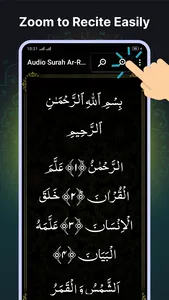 Zoom to Recite Easily
10:31
Audio Surah Ar-R...
بِسْمِ اللَّهِ الرَّحْمَٰنِ
الرَّحِيمِ
الرَّحْمَٰنُ ﴿١﴾ عَلَّمَ
الْقُرْآنَ ﴿٢﴾ خَلَقَ
الْإِنْسَانَ ﴿٣﴾ عَلَّمَهُ
الْبَيَانَ ﴿٤﴾
الشَّمْسُ وَالْقَمَرُ